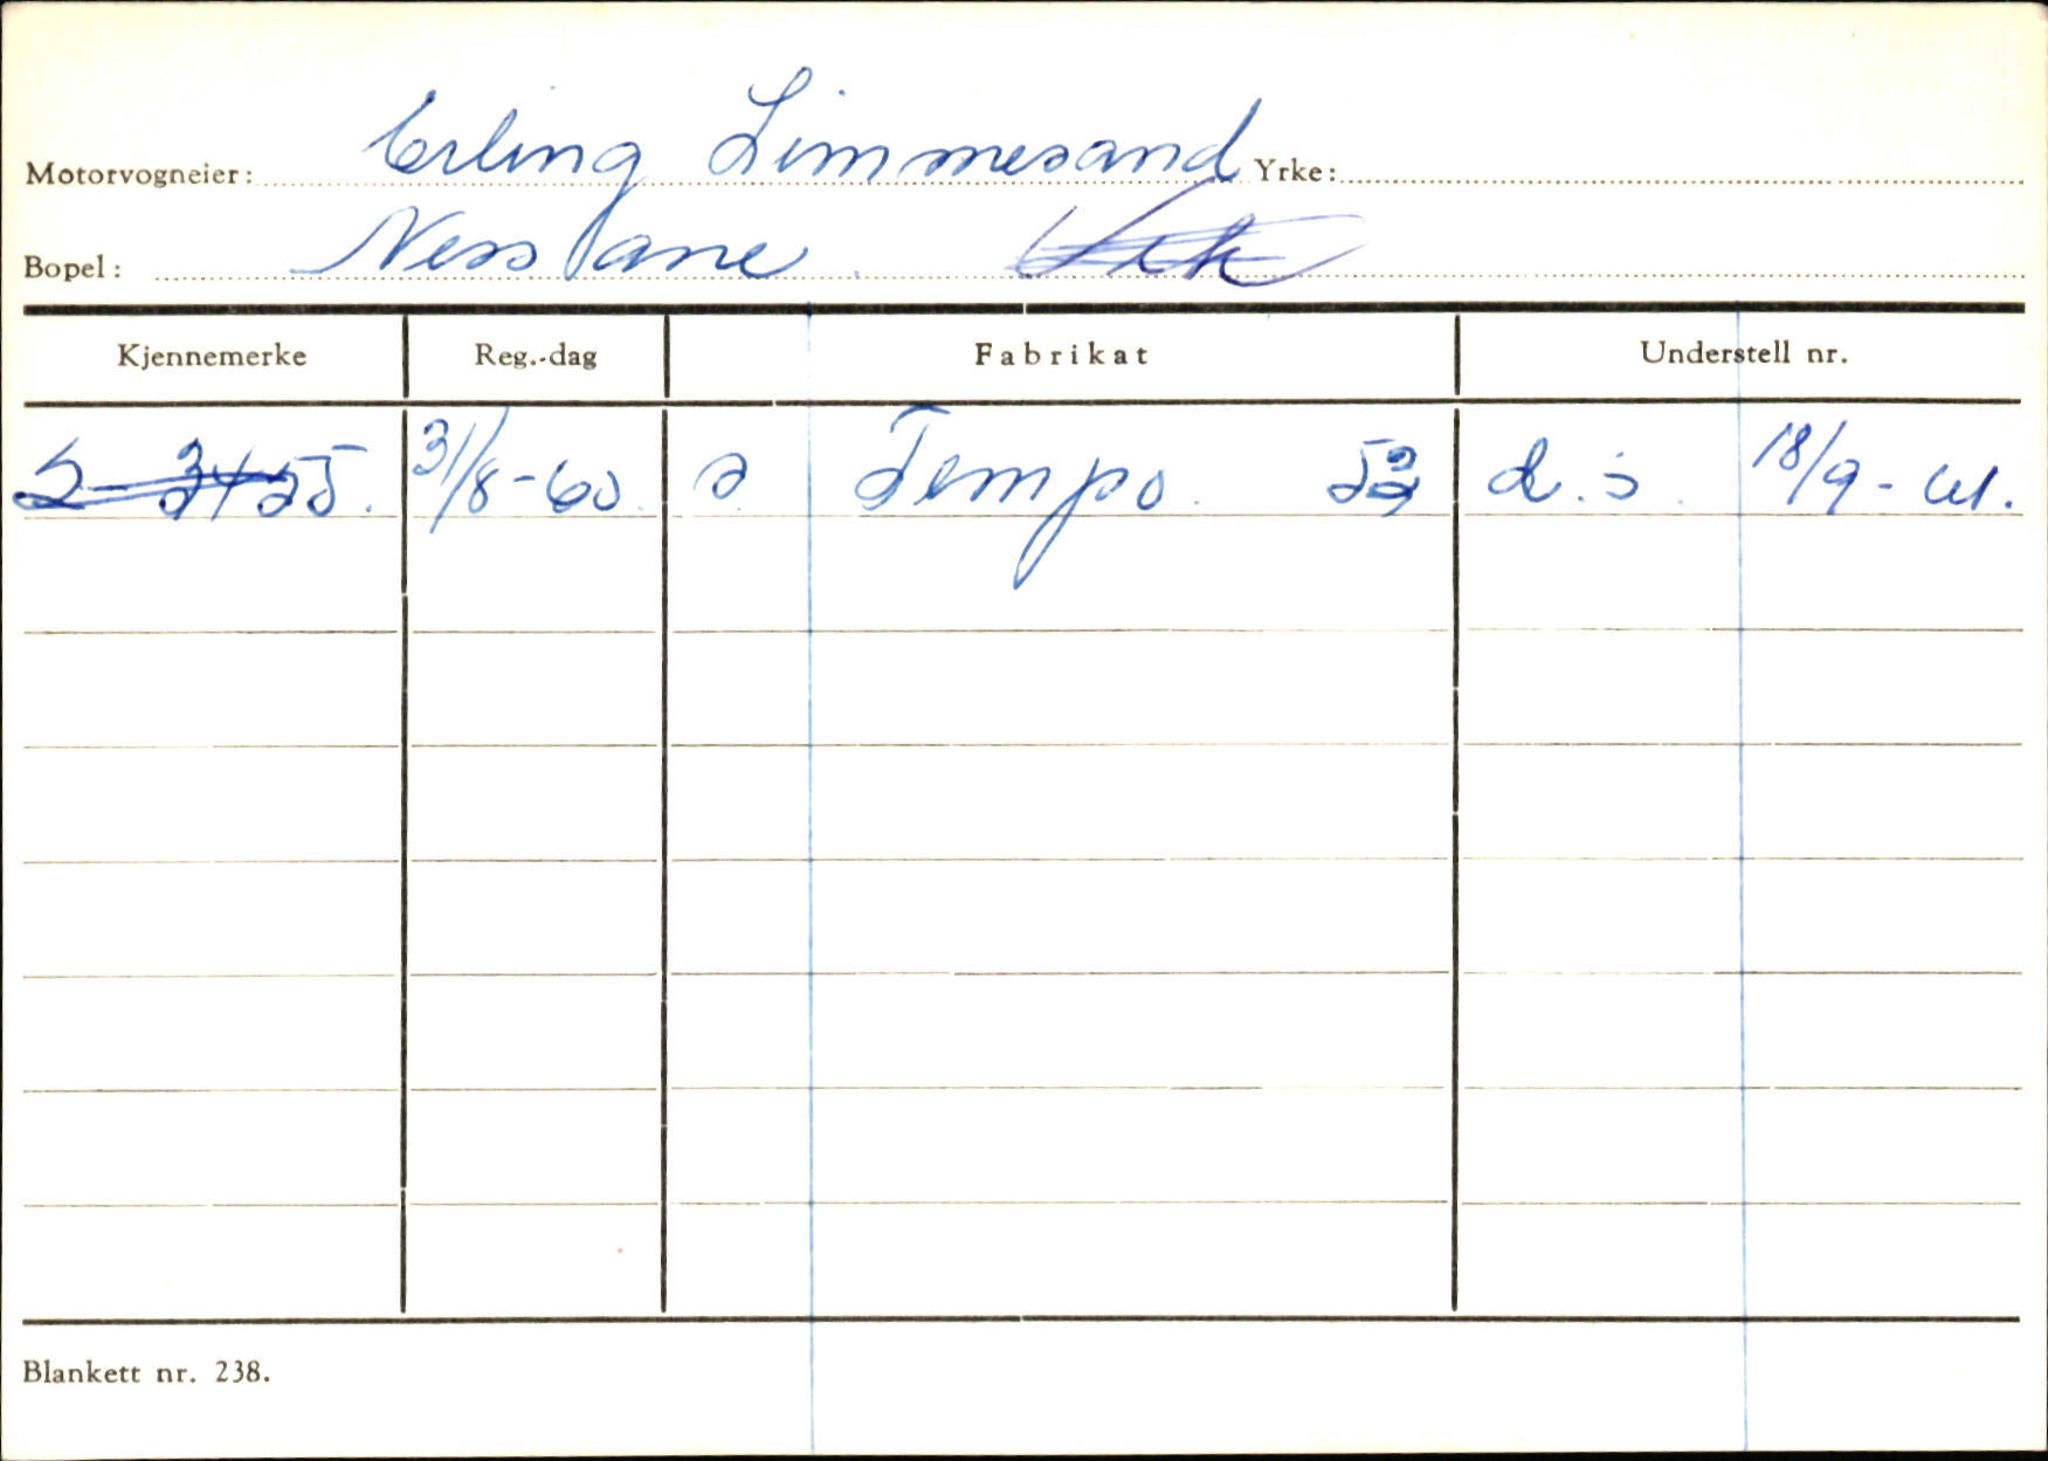 Motorvogneier: Erling Limmesand Yrke:
Bopel: Nesstane. Vik
Kjennemerke Reg.-dag Fabrikat Understell nr.
S-3425. 31/8-60. s. Tempo. 53 d.s. 18/9-61.
Blankett nr. 238.